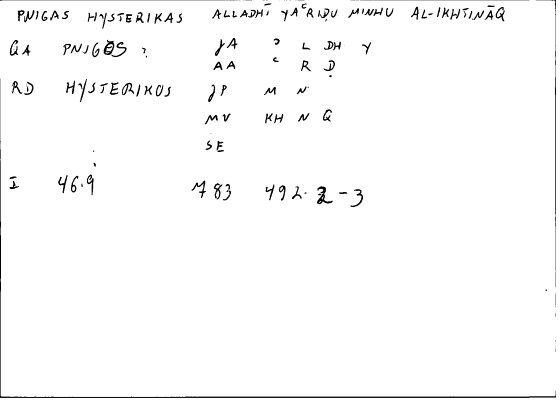 PNIGAS HYSTERIKAS ALLADHĪ YAʿRIḌU MINHU AL-IKHTINĀQ
QA PNIGOS ? JA ʾ L DH Y
AA ʿ R Ḍ
RD HYSTERIKOS JP M N
MV KH N Q
SE
I 46.9 M 83 492. 2-3